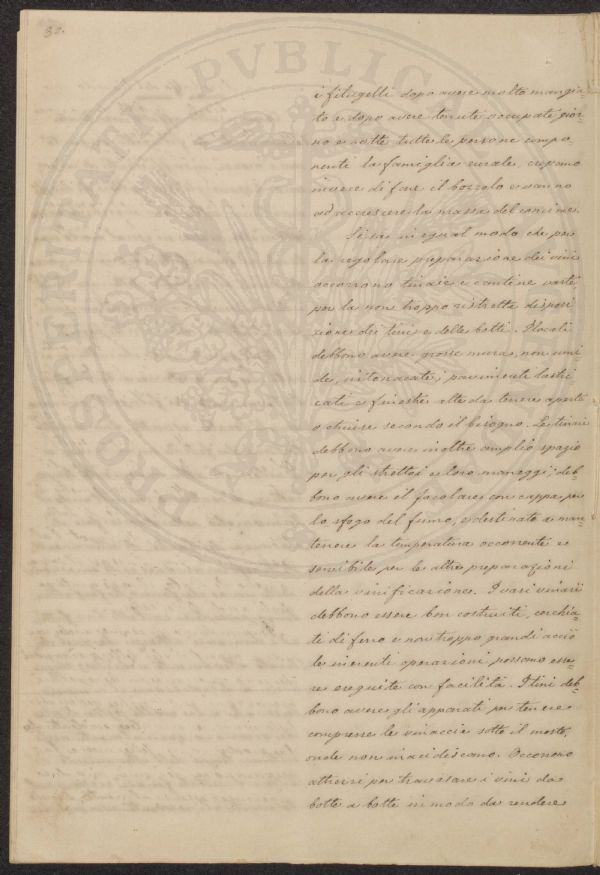 32.
PROSPERITATI PVBLICAE
i filugelli dopo avere molto mangia-
to e dopo avere tenute occupate gior-
no e notte tutte le persone compo
nenti la famiglia rurale, crepano
invece di fare il bozzolo e vanno
ad accrescere la massa del concime.
Si sa in egual modo che per
la regolare preparazione dei vini
occorrono tinaie e cantine vaste
per la non troppo ristretta disposi
zione dei tini e delle botti. I locali
debbono avere grosse mura, non umi
de, intonacate; pavimenti lastri
cati e finestre alte da tenere aperte
o chiuse secondo il bisogno. Le tinaie
debbono avere inoltre ampio spazio
per gli strettoi e loro maneggi; deb-
bono avere il focolare con cappa per
lo sfogo del fumo, e destinato a man-
tenere la temperatura occorrente e
sensibile per le altre preparazioni
della vinificazione. I vasi vinari
debbono essere ben costruiti, cerchia-
ti di ferro e non troppo grandi acciò
le inerenti operazioni possano esse-
re eseguite con facilità. I tini deb-
bono avere gli apparati per tenere
compresse le vinaccie sotto il mosto,
onde non inacidiscano. Occorrono
attrezzi per travasare i vini da
botte a botte in modo da rendere